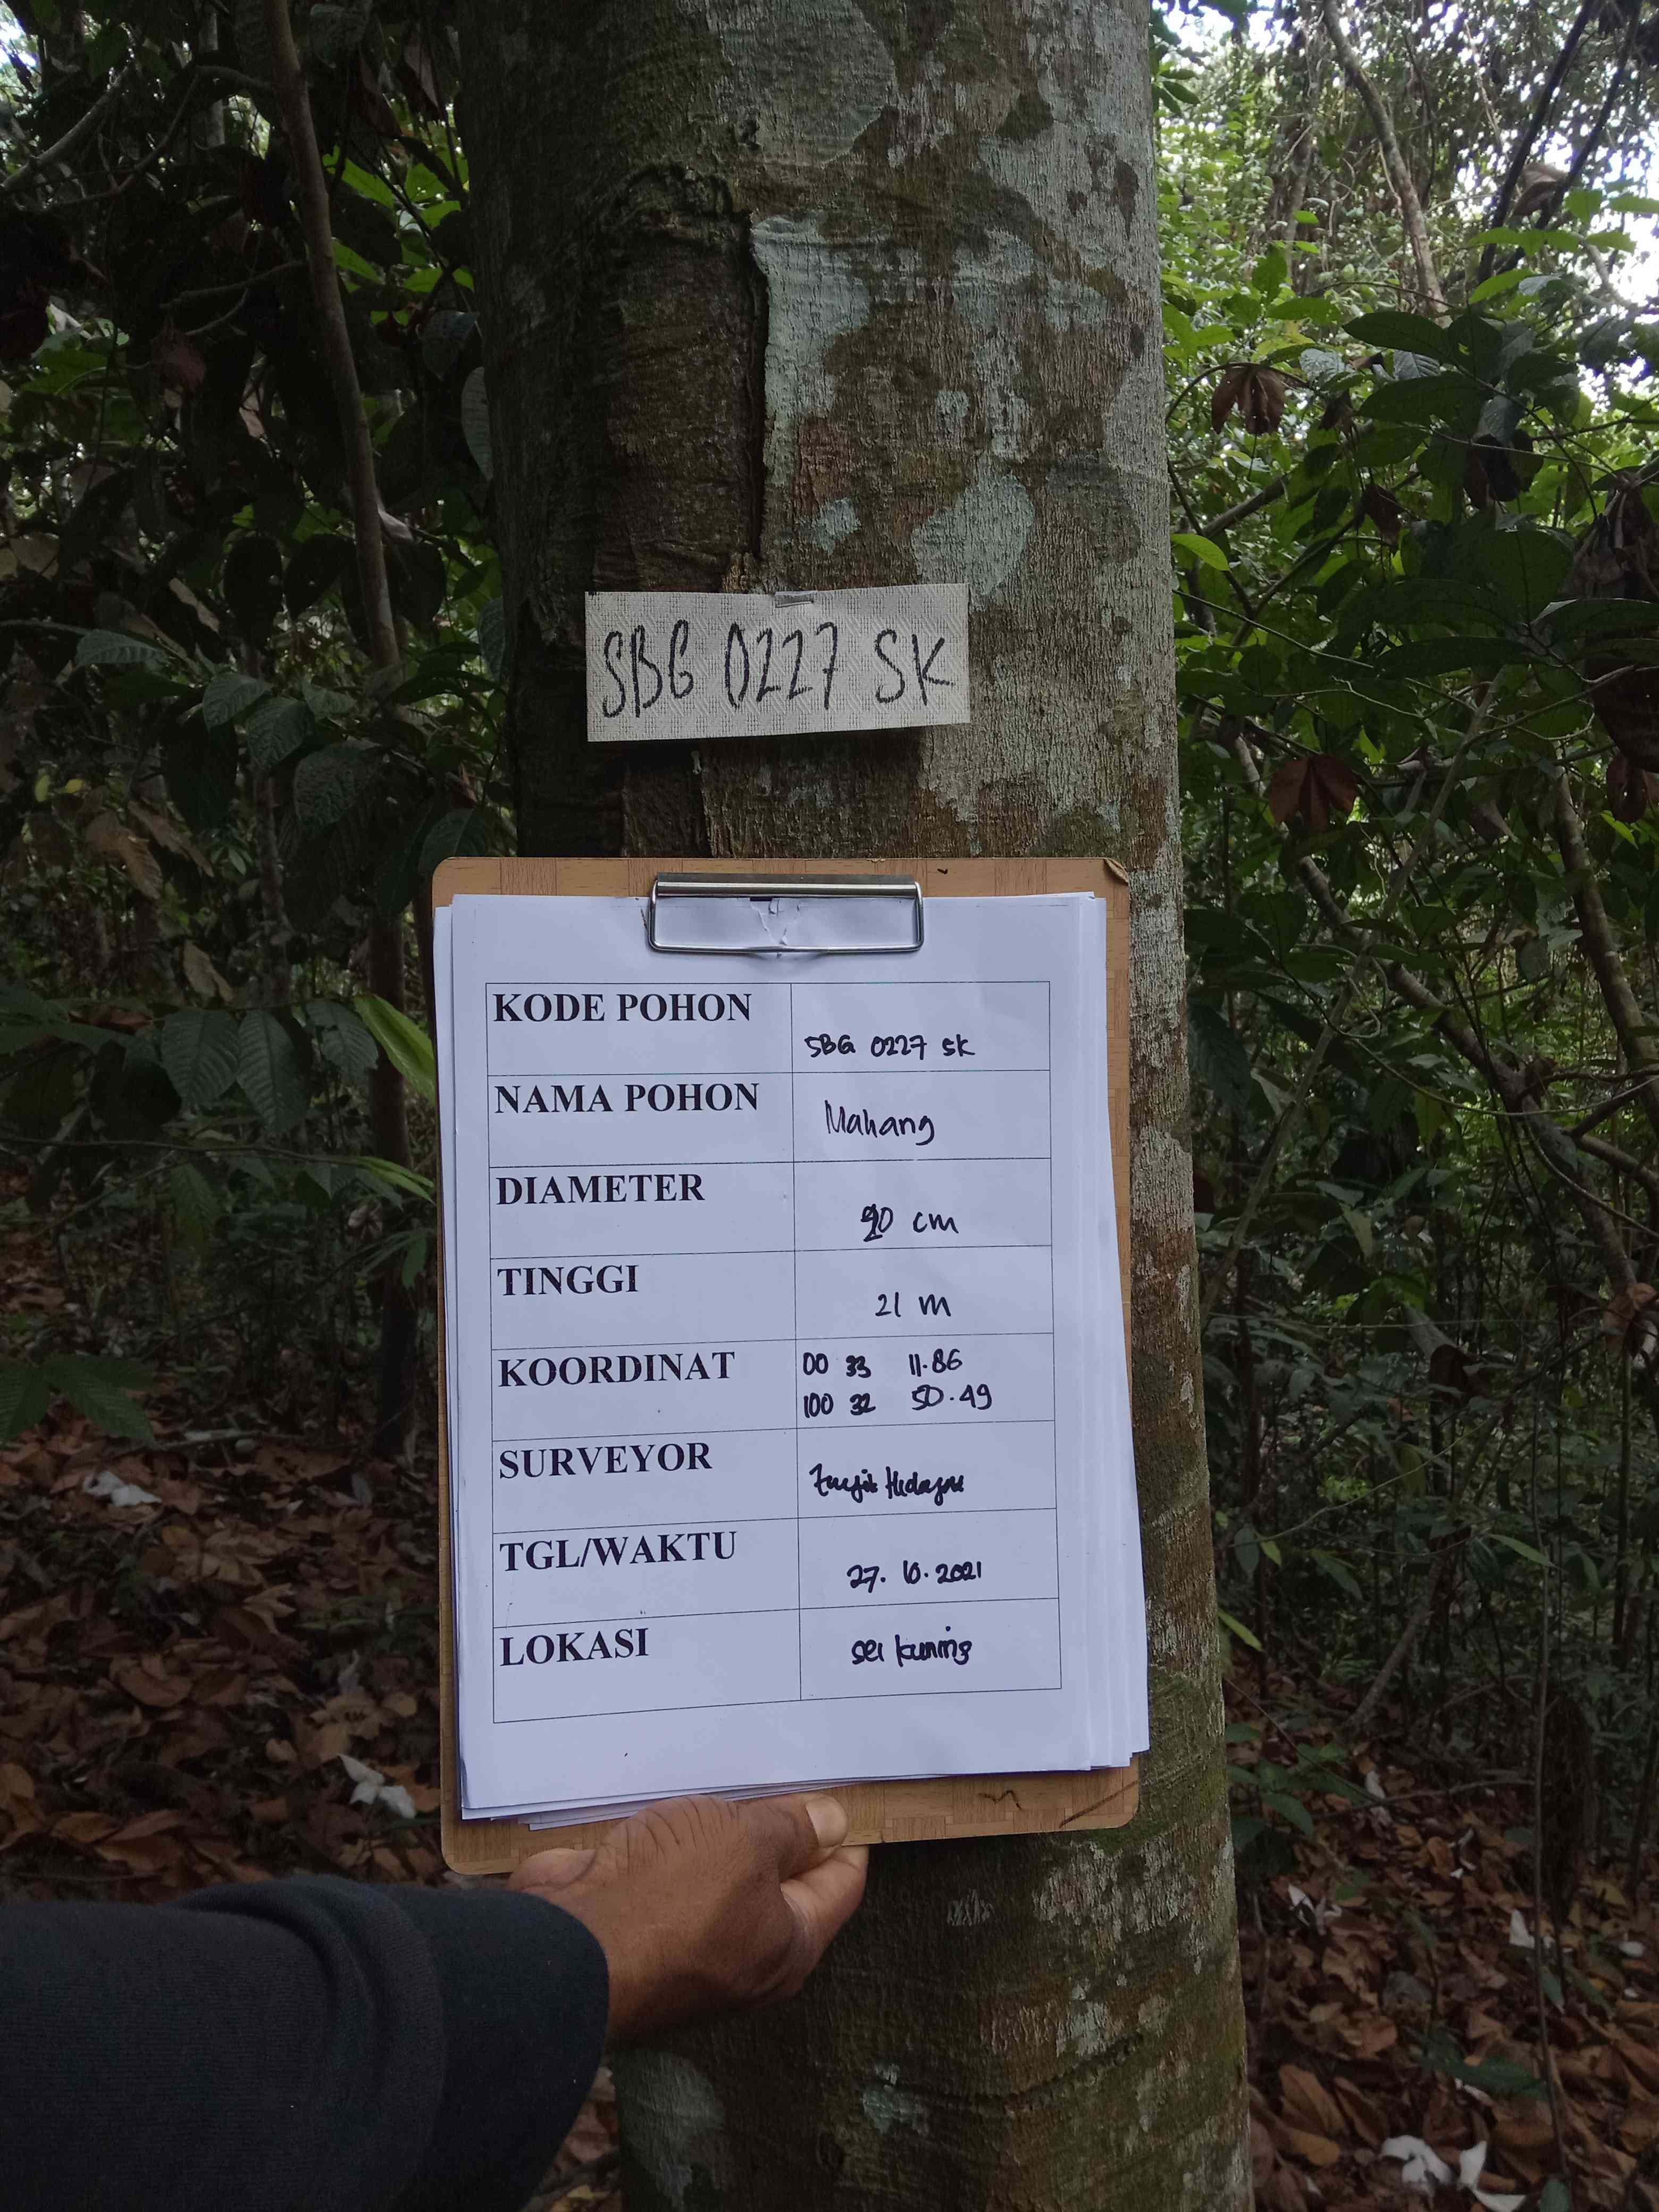 SBG 0227 SK
KODE POHON
SBG 0227 SK
NAMA POHON
Mahang
DIAMETER
cm
TINGGI
21 m
KOORDINAT
00 33 11.86
100 32 50.49
SURVEYOR
Hidayat
TGL/WAKTU
27. 10. 2021
LOKASI
sei kuning